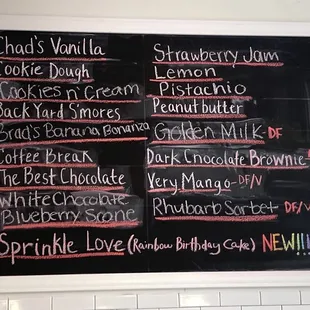 Chad's Vanilla
Cookie Dough
Cookies n' Cream
Back Yard S'mores
Brad's Banana Bonanza
Coffee Break
The Best Chocolate
White Chocolate
Blueberry Scone
Strawberry Jam
Lemon
Pistachio
Peanut butter
Golden Milk - DF
Dark Chocolate Brownie -
Very Mango - DF/N
Rhubarb Sorbet - DF/V
Sprinkle Love (Rainbow Birthday Cake) NEW!!!